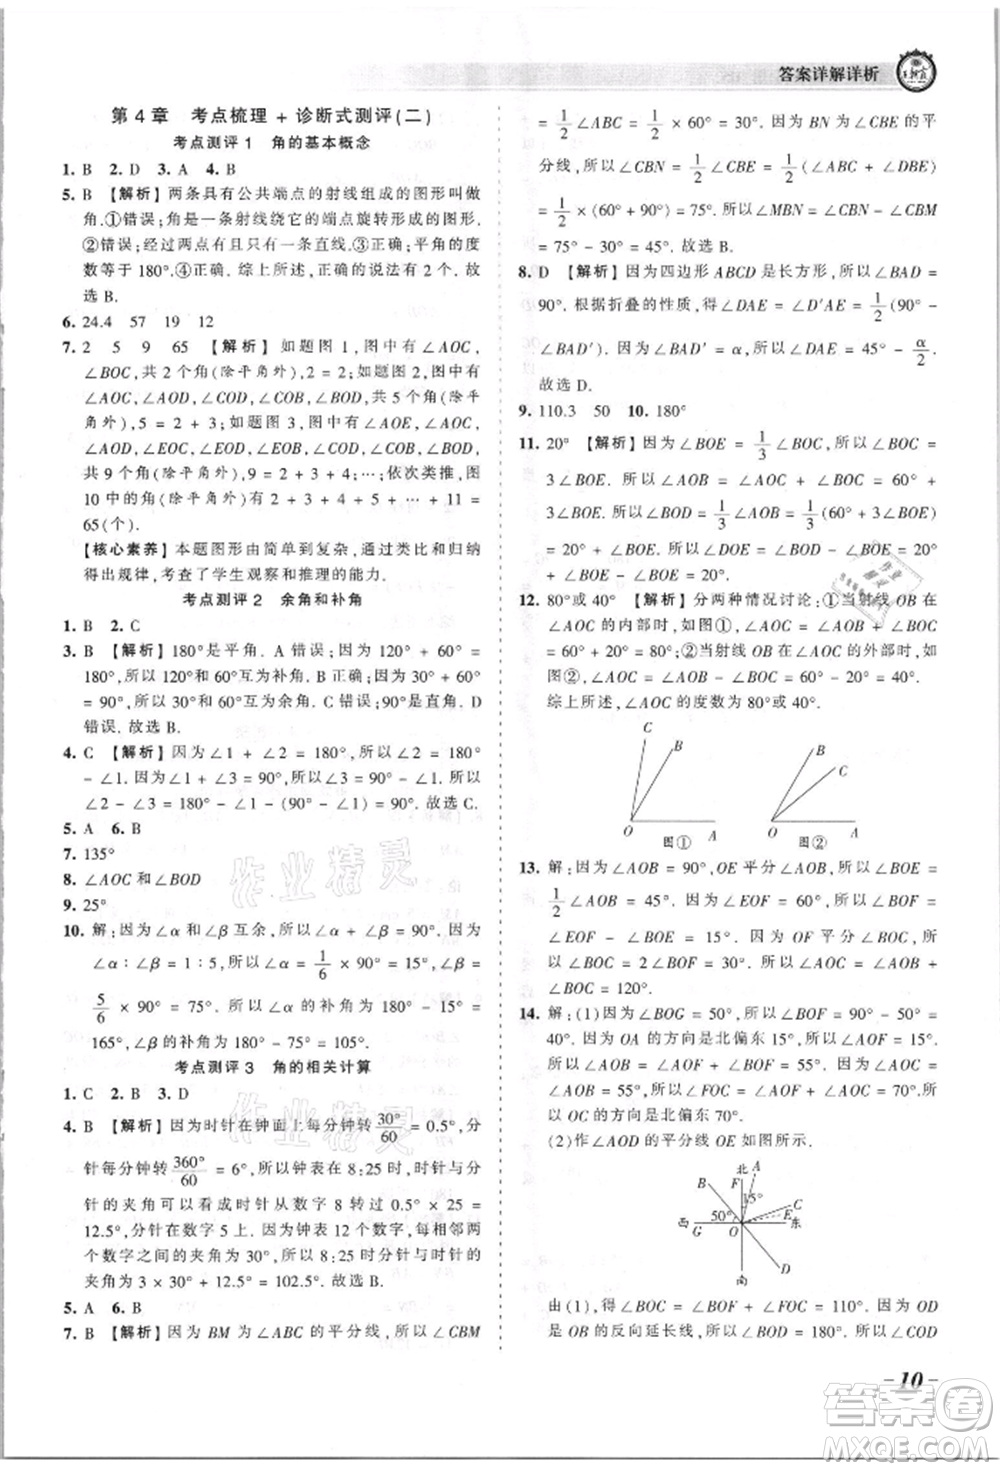 答案详解详析
第 4 章　考点梳理 + 诊断式测评(二)
考点测评 1　角的基本概念
1. B　2. D　3. A　4. B
5. B　【解析】两条具有公共端点的射线组成的图形叫做
角.①错误;角是一条射线绕它的端点旋转形成的图形.
②错误;经过两点有且只有一条直线.③正确;平角的度
数等于 180°.④正确. 综上所述,正确的说法有 2 个. 故
选 B.
6. 24.4　57　19　12
7. 2　5　9　65　【解析】如题图 1,图中有∠AOC,
∠BOC,共 2 个角(除平角外);如题图 2,图中有
∠AOC,∠AOD,∠COD,∠COB,∠BOD,共 5 个角
(除平角外),5 = 2 + 3;如题图 3,图中有∠AOC,
∠AOD,∠AOE,∠COD,∠COE,∠COB,∠DOE,
∠DOB,∠EOB,共 9 个角(除平角外),9 = 2 + 3 + 4;
∠AOD,∠EOC,∠EOD,∠EOB,∠COD,∠COB,∠BOD,
共 9 个角(除平角外),9 = 2 + 3 + 4;…;依次类推,图
10 中的角(除平角外)的个数为 2 + 3 + 4 + 5 + … + 11 =
65(个).
【核心素养】本题图形由简单到复杂,通过类比和归纳
得出规律,考查了学生观察和推理的能力.
考点测评 2　余角和补角
1. B　2. C
3. B　【解析】180°是平角. A 错误;因为 120° + 60° =
180°,所以 120°和 60°互为补角. B 正确;因为 120° >
90°,所以 30°和 60°互为余角. C 错误;60°是锐角. D
错误. 故选 B.
4. C　【解析】因为∠1 + ∠2 = 180°,所以∠2 = 180°
- ∠1. 因为∠1 + ∠3 = 90°,所以∠3 = 90° - ∠1. 所
以∠2 - ∠3 = 180° - ∠1 - (90° - ∠1) = 90°. 故选 C.
5. A　6. B
7. 135°
8. ∠AOC 和∠BOD
9. 25°
10. 解:因为∠α 和∠β 互余,所以∠α + ∠β = 90°. 因为
∠α:∠β = 1:5,所以∠α = 1/6 × 90° = 15°,∠β =
5/6 × 90° = 75°. 所以∠α 的补角为 180° - 15° =
165°,∠β 的补角为 180° - 75° = 105°.
考点测评 3　角的相关计算
1. C　2. B　3. D
4. B　【解析】因为时针在钟面上每分钟转 30°/60 = 0.5°,分
针每分钟转 360°/60 = 6°,所以钟表上 8:25 时,时针与分
针的夹角可以看成时针从数字 8 转过 0.5° × 25 =
12.5°,分针在数字 5 上. 因为钟表 12 个数字,每相邻两个
数字之间的夹角为 30°,所以 8:25 时分针与时针的
夹角为 3 × 30° + 12.5° = 102.5°. 故选 B.
5. A　6. B
7. B　【解析】因为 BM 为∠ABC 的平分线,所以∠CBM
= 1/2 ∠ABC = 1/2 × 60° = 30°. 因为 BN 为∠CBE 的平
分线,所以∠CBN = 1/2 ∠CBE = 1/2 (∠ABC + ∠DBE) =
1/2 × (60° + 90°) = 75°. 所以∠MBN = ∠CBN - ∠CBM
= 75° - 30° = 45°. 故选 B.
8. D　【解析】因为四边形 ABCD 是长方形,所以∠BAD =
90°. 根据折叠的性质,得∠DAE = ∠D′AE = 1/2 (90° -
∠BAD′). 又因为∠BAD′ = α,所以∠DAE = 45° - α/2.
故选 D.
9. 110.3　50　10. 180°
11. 20°　【解析】因为∠BOE = 1/3 ∠BOC,所以∠BOC =
3∠BOE. 所以∠AOB = ∠AOC + ∠BOC = 60° +
3∠BOE. 所以∠BOD = 1/3 ∠AOB = 1/3 (60° + 3∠BOE)
= 20° + ∠BOE. 所以∠DOE = ∠BOD - ∠BOE =
20° + ∠BOE - ∠BOE = 20°.
12. 80°或 40°　【解析】分两种情况讨论:①当射线 OB 在
∠AOC 的内部时,如图①,∠AOC = ∠AOB + ∠BOC =
60° + 20° = 80°;②当射线 OB 在∠AOC 的外部时,如
图②,∠AOC = ∠AOB - ∠BOC = 60° - 20° = 40°.
综上所述,∠AOC 的度数为 80°或 40°.
C B O A 图①
B C O A 图②
13. 解:因为∠AOB = 90°,OE 平分∠AOB,所以∠BOE =
1/2 ∠AOB = 45°. 又因为∠EOF = 60°,所以∠BOF =
∠EOF - ∠BOE = 15°. 因为 OF 平分∠BOC,所以
∠BOC = 2∠BOF = 30°. 所以∠AOC = ∠AOB +
∠BOC = 120°.
14. 解:(1)因为∠BOG = 50°,所以∠BOF = 90° - 50° =
40°. 因为 OA 的方向是北偏东 15°,所以∠AOF = 15°.
所以∠AOB = 55°. 因为∠AOC = ∠AOB,所以
∠AOC = 55°,所以∠FOC = ∠AOF + ∠AOC = 70°. 所
以 OC 的方向是北偏东 70°.
(2)作∠AOD 的平分线 OE 如图所示.
北 A B F 15° C E 50° 西 东 G O 南 D
由(1),得∠BOC = ∠BOF + ∠FOC = 110°. 因为 OD
是 OB 的反向延长线,所以∠BOD = 180°. 所以∠COD
- 10 -
作业精灵
作业精灵
答案圈
MXQE.COM